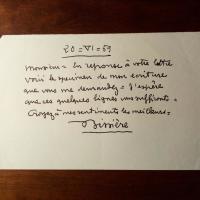 20 = VI = 59
Monsieur = En reponse à votre lettre
voici le specimen de mon ecriture
que vous me demandez = J'espère
que ces quelques lignes vous suffiront =
Croyez à mes sentiments les meilleurs =
Bissière